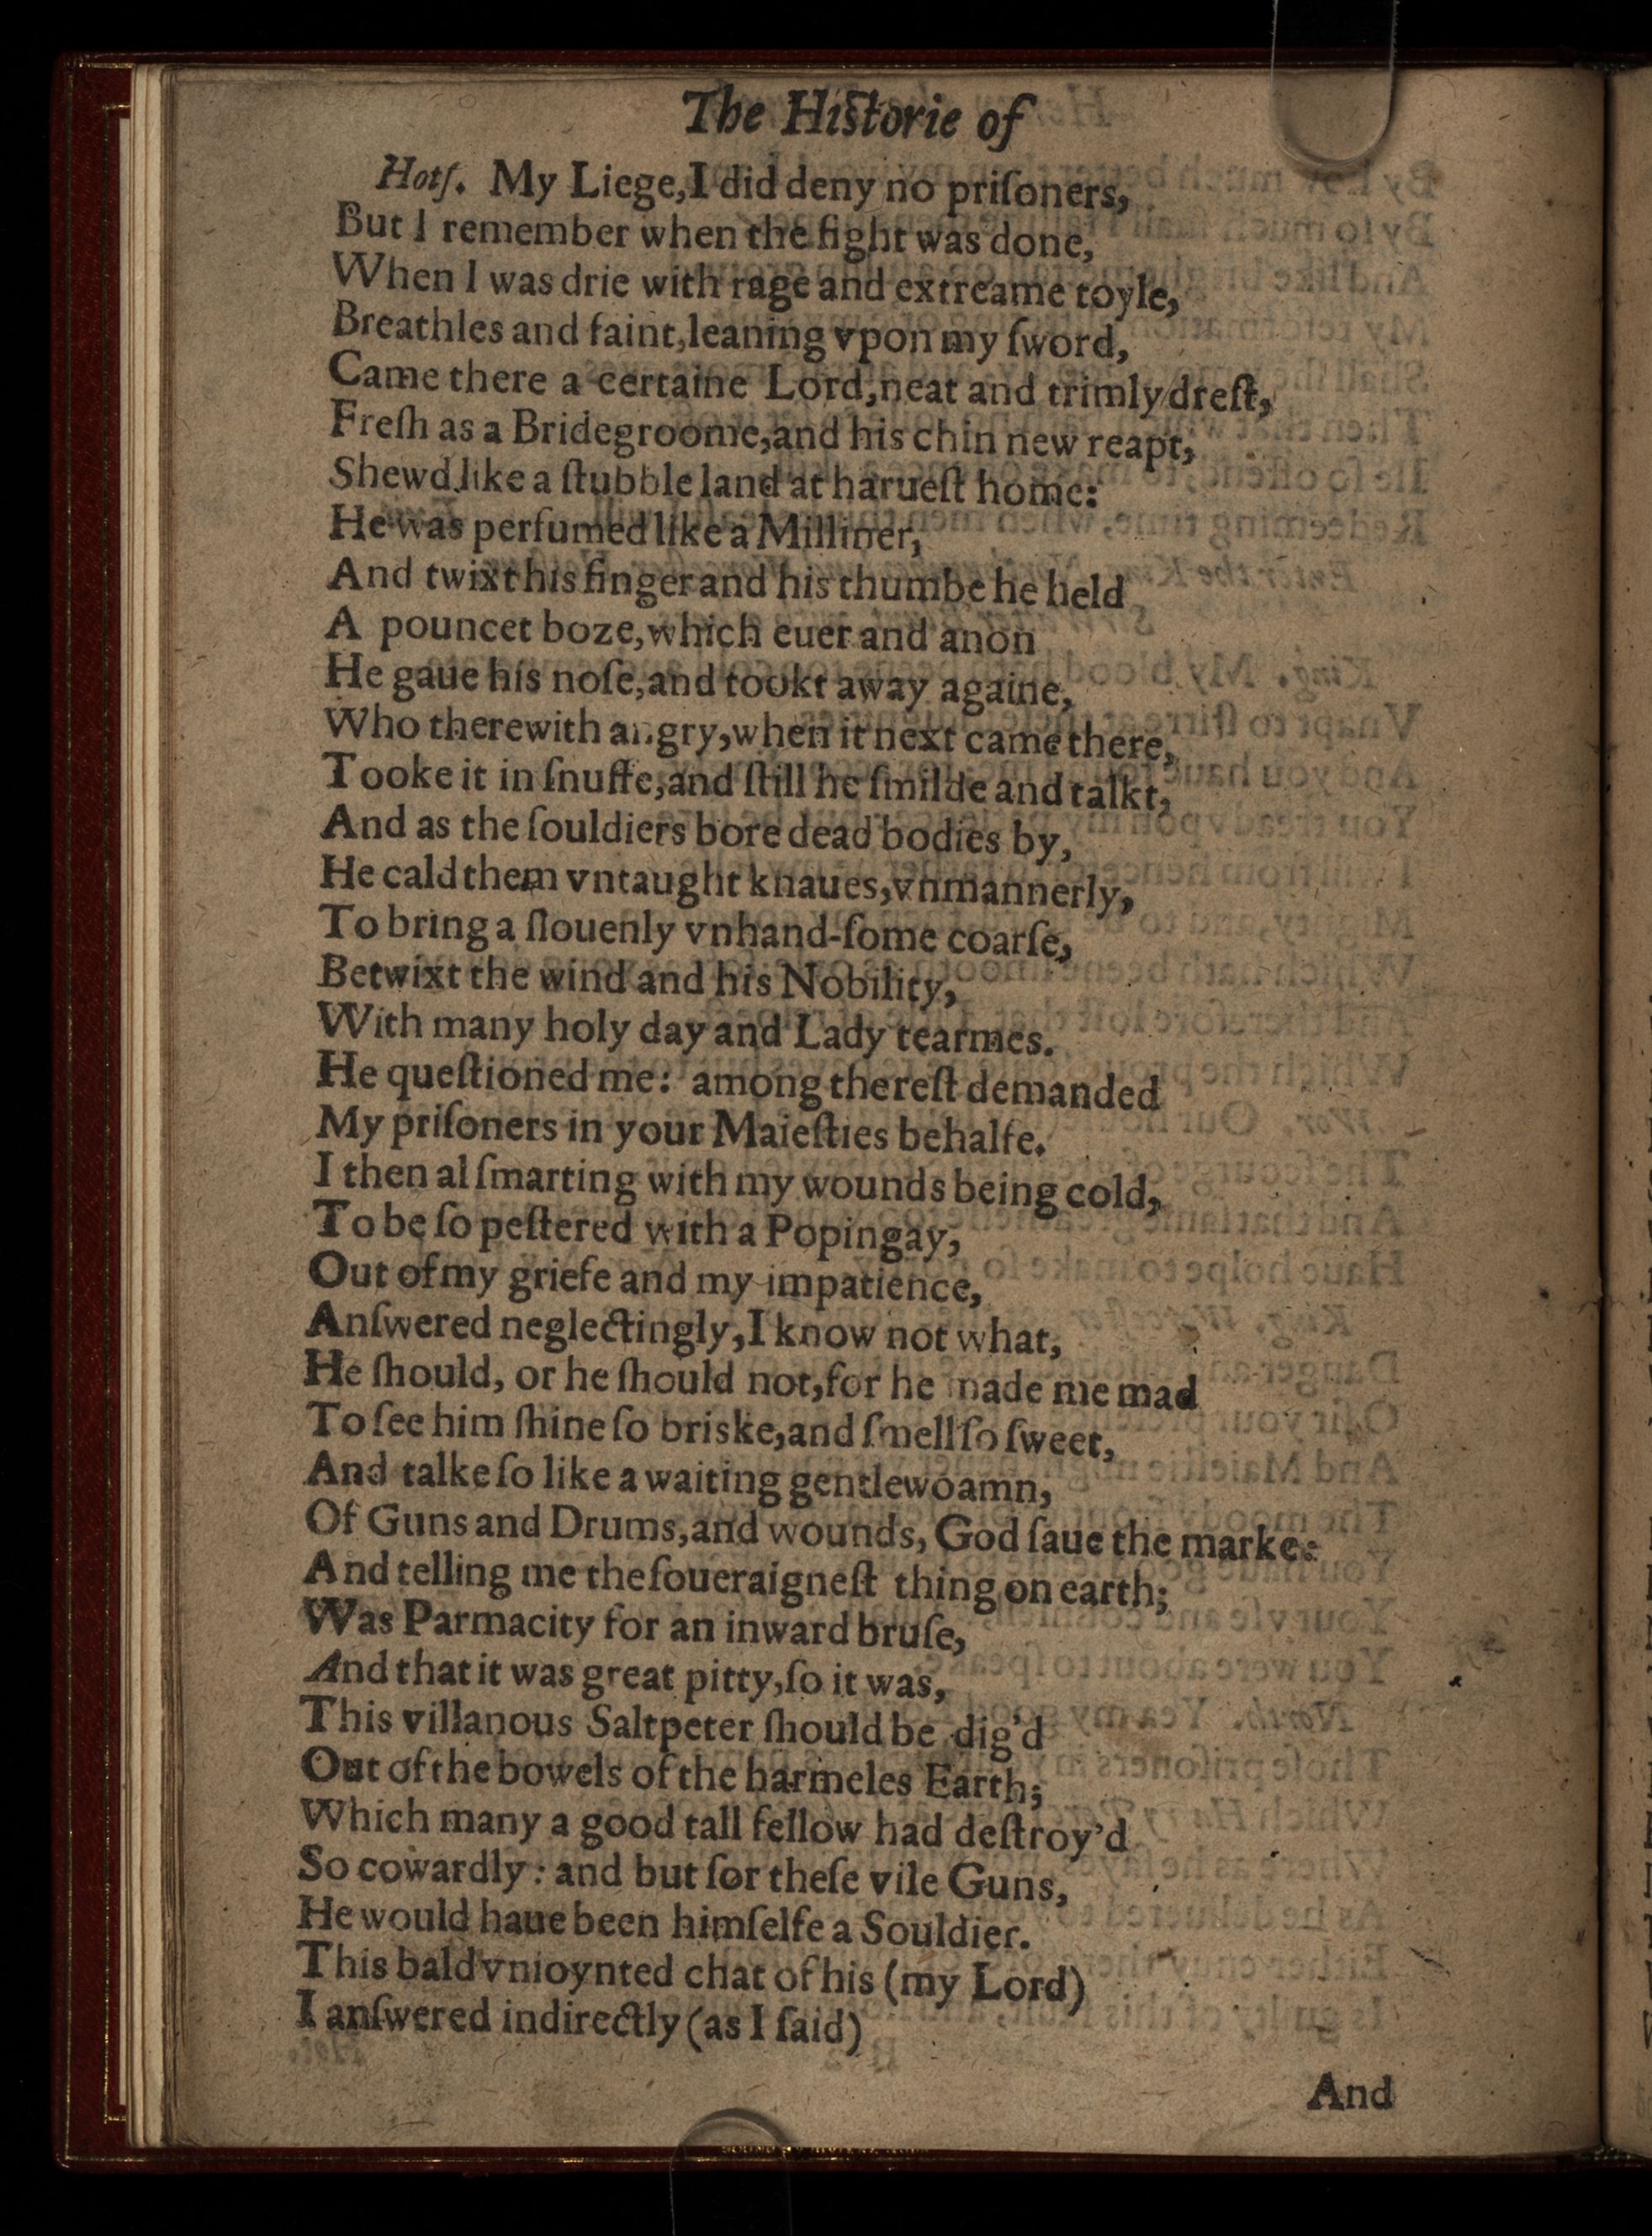 The Hiſtorie of
Hotſ. My Liege,I did deny no priſoners,
But I remember when the fight was done,
When I was drie with rage and extreame toyle,
Breathles and faint,leaning vpon my ſword,
Came there a certaine Lord,neat and trimly dreſt,
Freſh as a Bridegroome,and his chin new reapt,
Shewd like a ſtubble land at harueſt home:
He was perfumed like a Milliner,
And twixt his finger and his thumbe he held
A pouncet boze,which euer and anon
He gaue his noſe,and tookt away againe,
Who therewith angry,when it next came there,
Tooke it in ſnuffe,and ſtill he ſmilde and talkt,
And as the ſouldiers bore dead bodies by,
He cald them vntaught knaues,vnmannerly,
To bring a ſlouenly vnhand-ſome coarſe,
Betwixt the wind and his Nobility,
With many holy day and Lady tearmes.
He queſtioned me: among the reſt demanded
My priſoners in your Maieſties behalfe.
I then al ſmarting with my wounds being cold,
To be ſo peſtered with a Popingay,
Out of my griefe and my impatience,
Anſwered neglectingly,I know not what,
He ſhould, or he ſhould not,for he made me mad
To ſee him ſhine ſo briske,and ſmell ſo ſweet,
And talke ſo like a waiting gentlewoamn,
Of Guns and Drums,and wounds, God ſaue the marke:
And telling me the ſoueraigneſt thing on earth;
Was Parmacity for an inward bruſe,
And that it was great pitty,ſo it was,
This villanous Saltpeter ſhould be dig'd
Out of the bowels of the harmeles Earth;
Which many a good tall fellow had deſtroy'd
So cowardly: and but ſor theſe vile Guns,
He would haue been himſelfe a Souldier.
This bald vnioynted chat of his (my Lord)
I anſwered indirectly (as I ſaid)
And